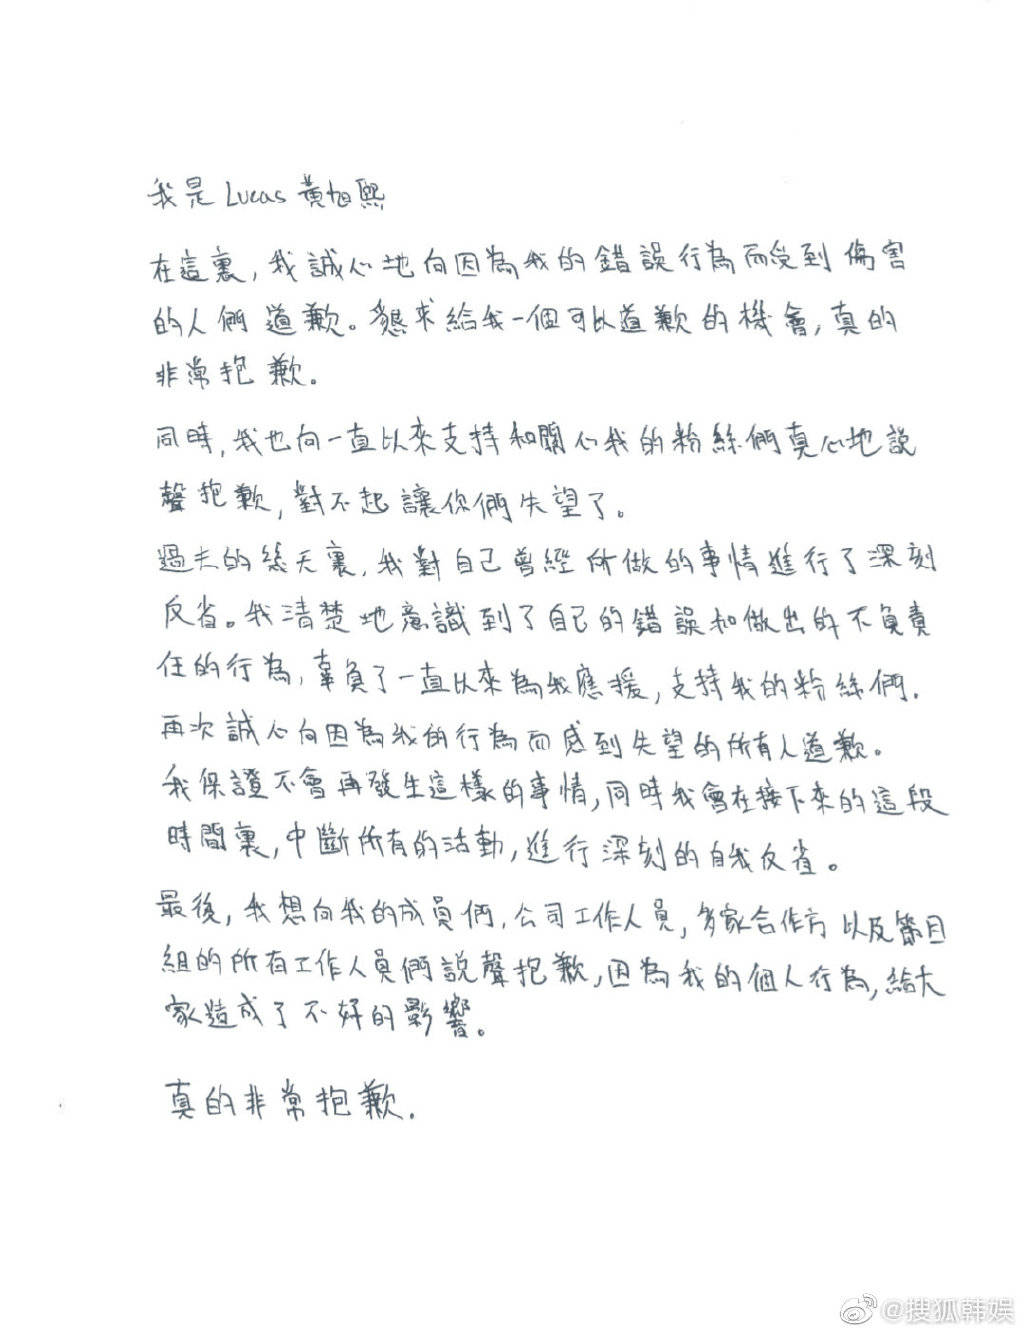 我是Lucas 黃旭熙
在這裏,我誠心地向因為我的錯誤行為而受到傷害
的人們道歉。懇求給我一個可以道歉的機會,真的
非常抱歉。
同時,我也向一直以來支持和關心我的粉絲們真心地說
聲抱歉,對不起讓你們失望了。
過去的幾天裏,我對自己曾經所做的事情進行了深刻
反省。我清楚地意識到了自己的錯誤和做出的不負責
任的行為,辜負了一直以來為我應援,支持我的粉絲們.
再次誠心向因為我的行為而感到失望的所有人道歉。
我保證不會再發生這樣的事情,同時我會在接下來的這段
時間裏,中斷所有的活動,進行深刻的自我反省。
最後,我想向我的成員們,公司工作人員,多家合作方以及節目
組的所有工作人員們說聲抱歉,因為我的個人行為,給大
家造成了不好的影響。
真的非常抱歉.
@搜狐韩娱